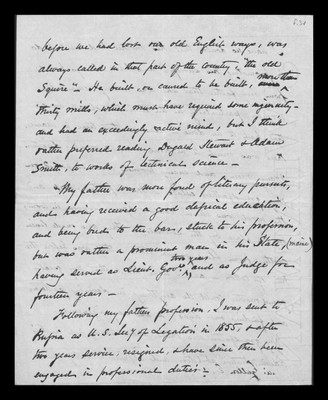 before we had lost our old English ways, was
always called in that part of the county, "the old
Squire" - He built, or caused to be built, more than
thirty mills, which must have required some ingenuity -
and had an exceedingly active mind, but I think
rather preferred reading Dugald Stewart & Adam
Smith, to works of technical science -
My father was more fond of literary pursuits,
and having received a good classical education,
and being bred to the bar, stuck to his profession,
but was rather a prominent man in his State (Maine)
having served as Lieut. Gov. two years and as Judge for
fourteen years -
Following my father's profession, I was sent to
Russia as U.S. Sec'y of Legation in 1855, & after
two years service, resigned, & have since then been
engaged in professional duties -